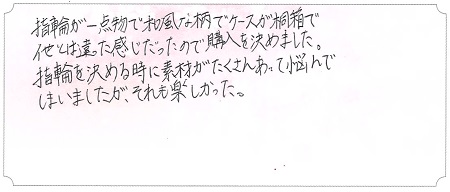 指輪が一点物で和風な柄でケースが桐箱で
他とは違った感じだったので購入を決めました。
指輪を決める時に素材がたくさんあって悩んで
しまいましたが、それも楽しかった。